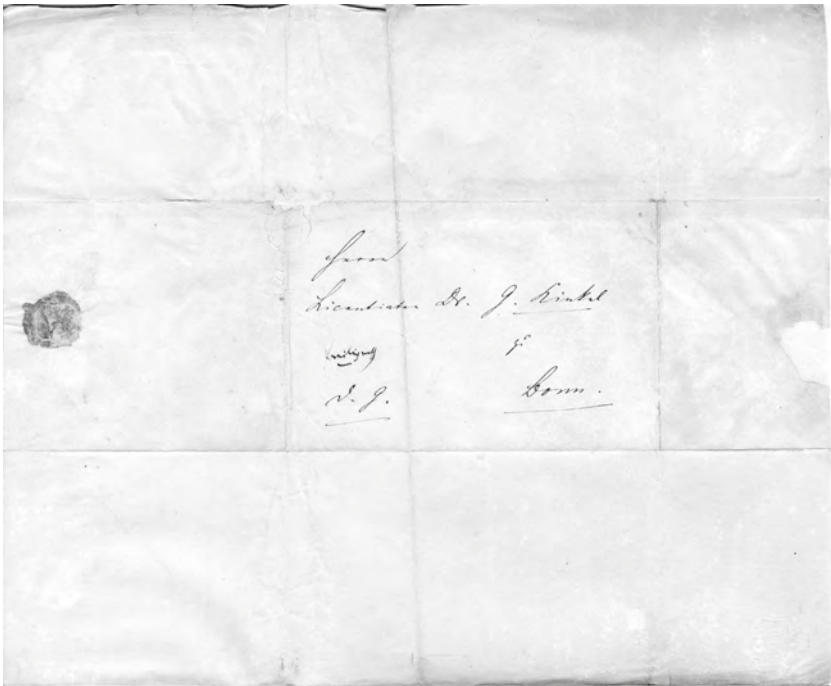 Herrn
Licentiaten Dr. G. Kinkel
zu
d. G.
Bonn.